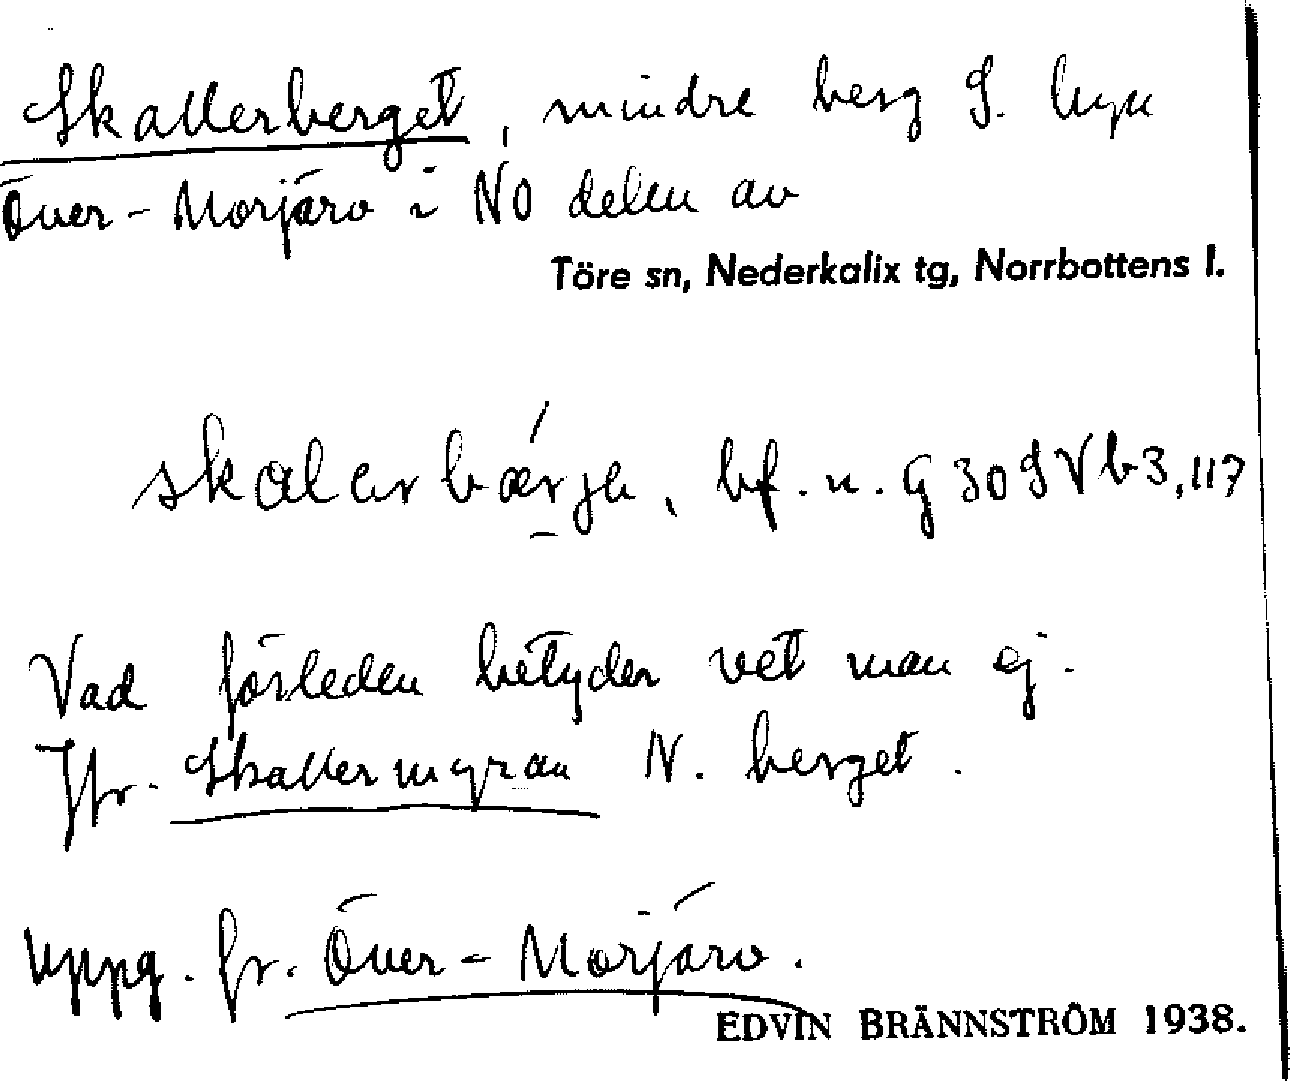 Skallerberget, mindre berg S. byn
Över-Morjärv i NO delen av
Töre sn, Nederkalix tg, Norrbottens l.
skalerbærje, bf. n. G 30 S V b 3, 117
Vad förleden betyder vet man ej.
Jfr. Skallermyran N. berget.
Uppg. fr. Över-Morjärv.
EDVIN BRÄNNSTRÖM 1938.